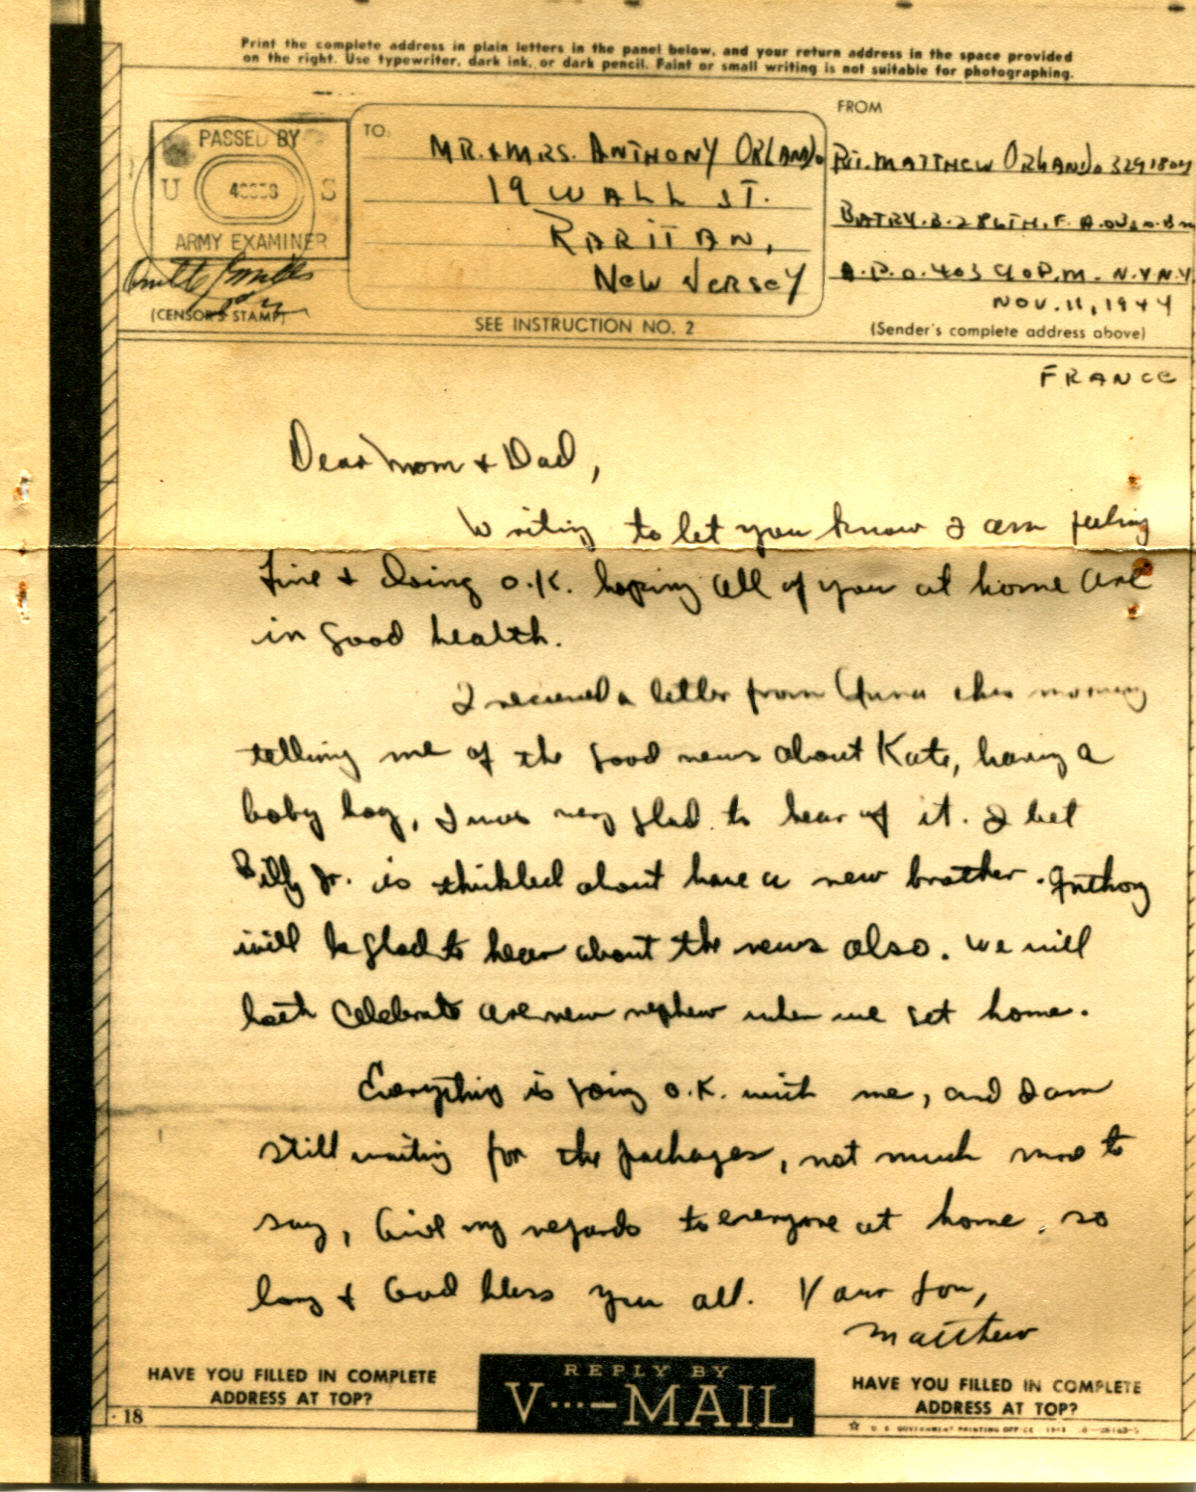 Print the complete address in plain letters in the panel below, and your return address in the space provided
on the right. Use typewriter, dark ink, or dark pencil. Faint or small writing is not suitable for photographing.
PASSED BY
U S
ARMY EXAMINER
(CENSOR'S STAMP)
TO:
MR. & MRS. ANTHONY ORLANDO
19 WALL ST.
RARITAN,
NEW JERSEY
SEE INSTRUCTION NO. 2
FROM
PVT. MATTHEW ORLANDO
BATRY. B. 286TH. F. A. OBS. BN
A.P.O. 403 % P.M. N.Y. N.Y
NOV. 11, 1944
(Sender's complete address above)
FRANCE
Dear Mom & Dad,
Writing to let you know I am feeling
fine & doing O.K. hoping all of you at home are
in good health.
I received a letter from Anna this morning
telling me of the good news about Kate, having a
baby boy, I was very glad to hear of it. I bet
Billy Jr. is thickled about have a new brother. Anthony
will be glad to hear about the news also. We will
both celebrate are new nephew when we get home.
Everything is going O.K. with me, and I am
still waiting for the packages, not much more to
say, Give my regards to everyone at home. so
long & God bless you all. Your Son,
Matthew
HAVE YOU FILLED IN COMPLETE
ADDRESS AT TOP?
REPLY BY
V···—MAIL
HAVE YOU FILLED IN COMPLETE
ADDRESS AT TOP?
18
U. S. GOVERNMENT PRINTING OFFICE